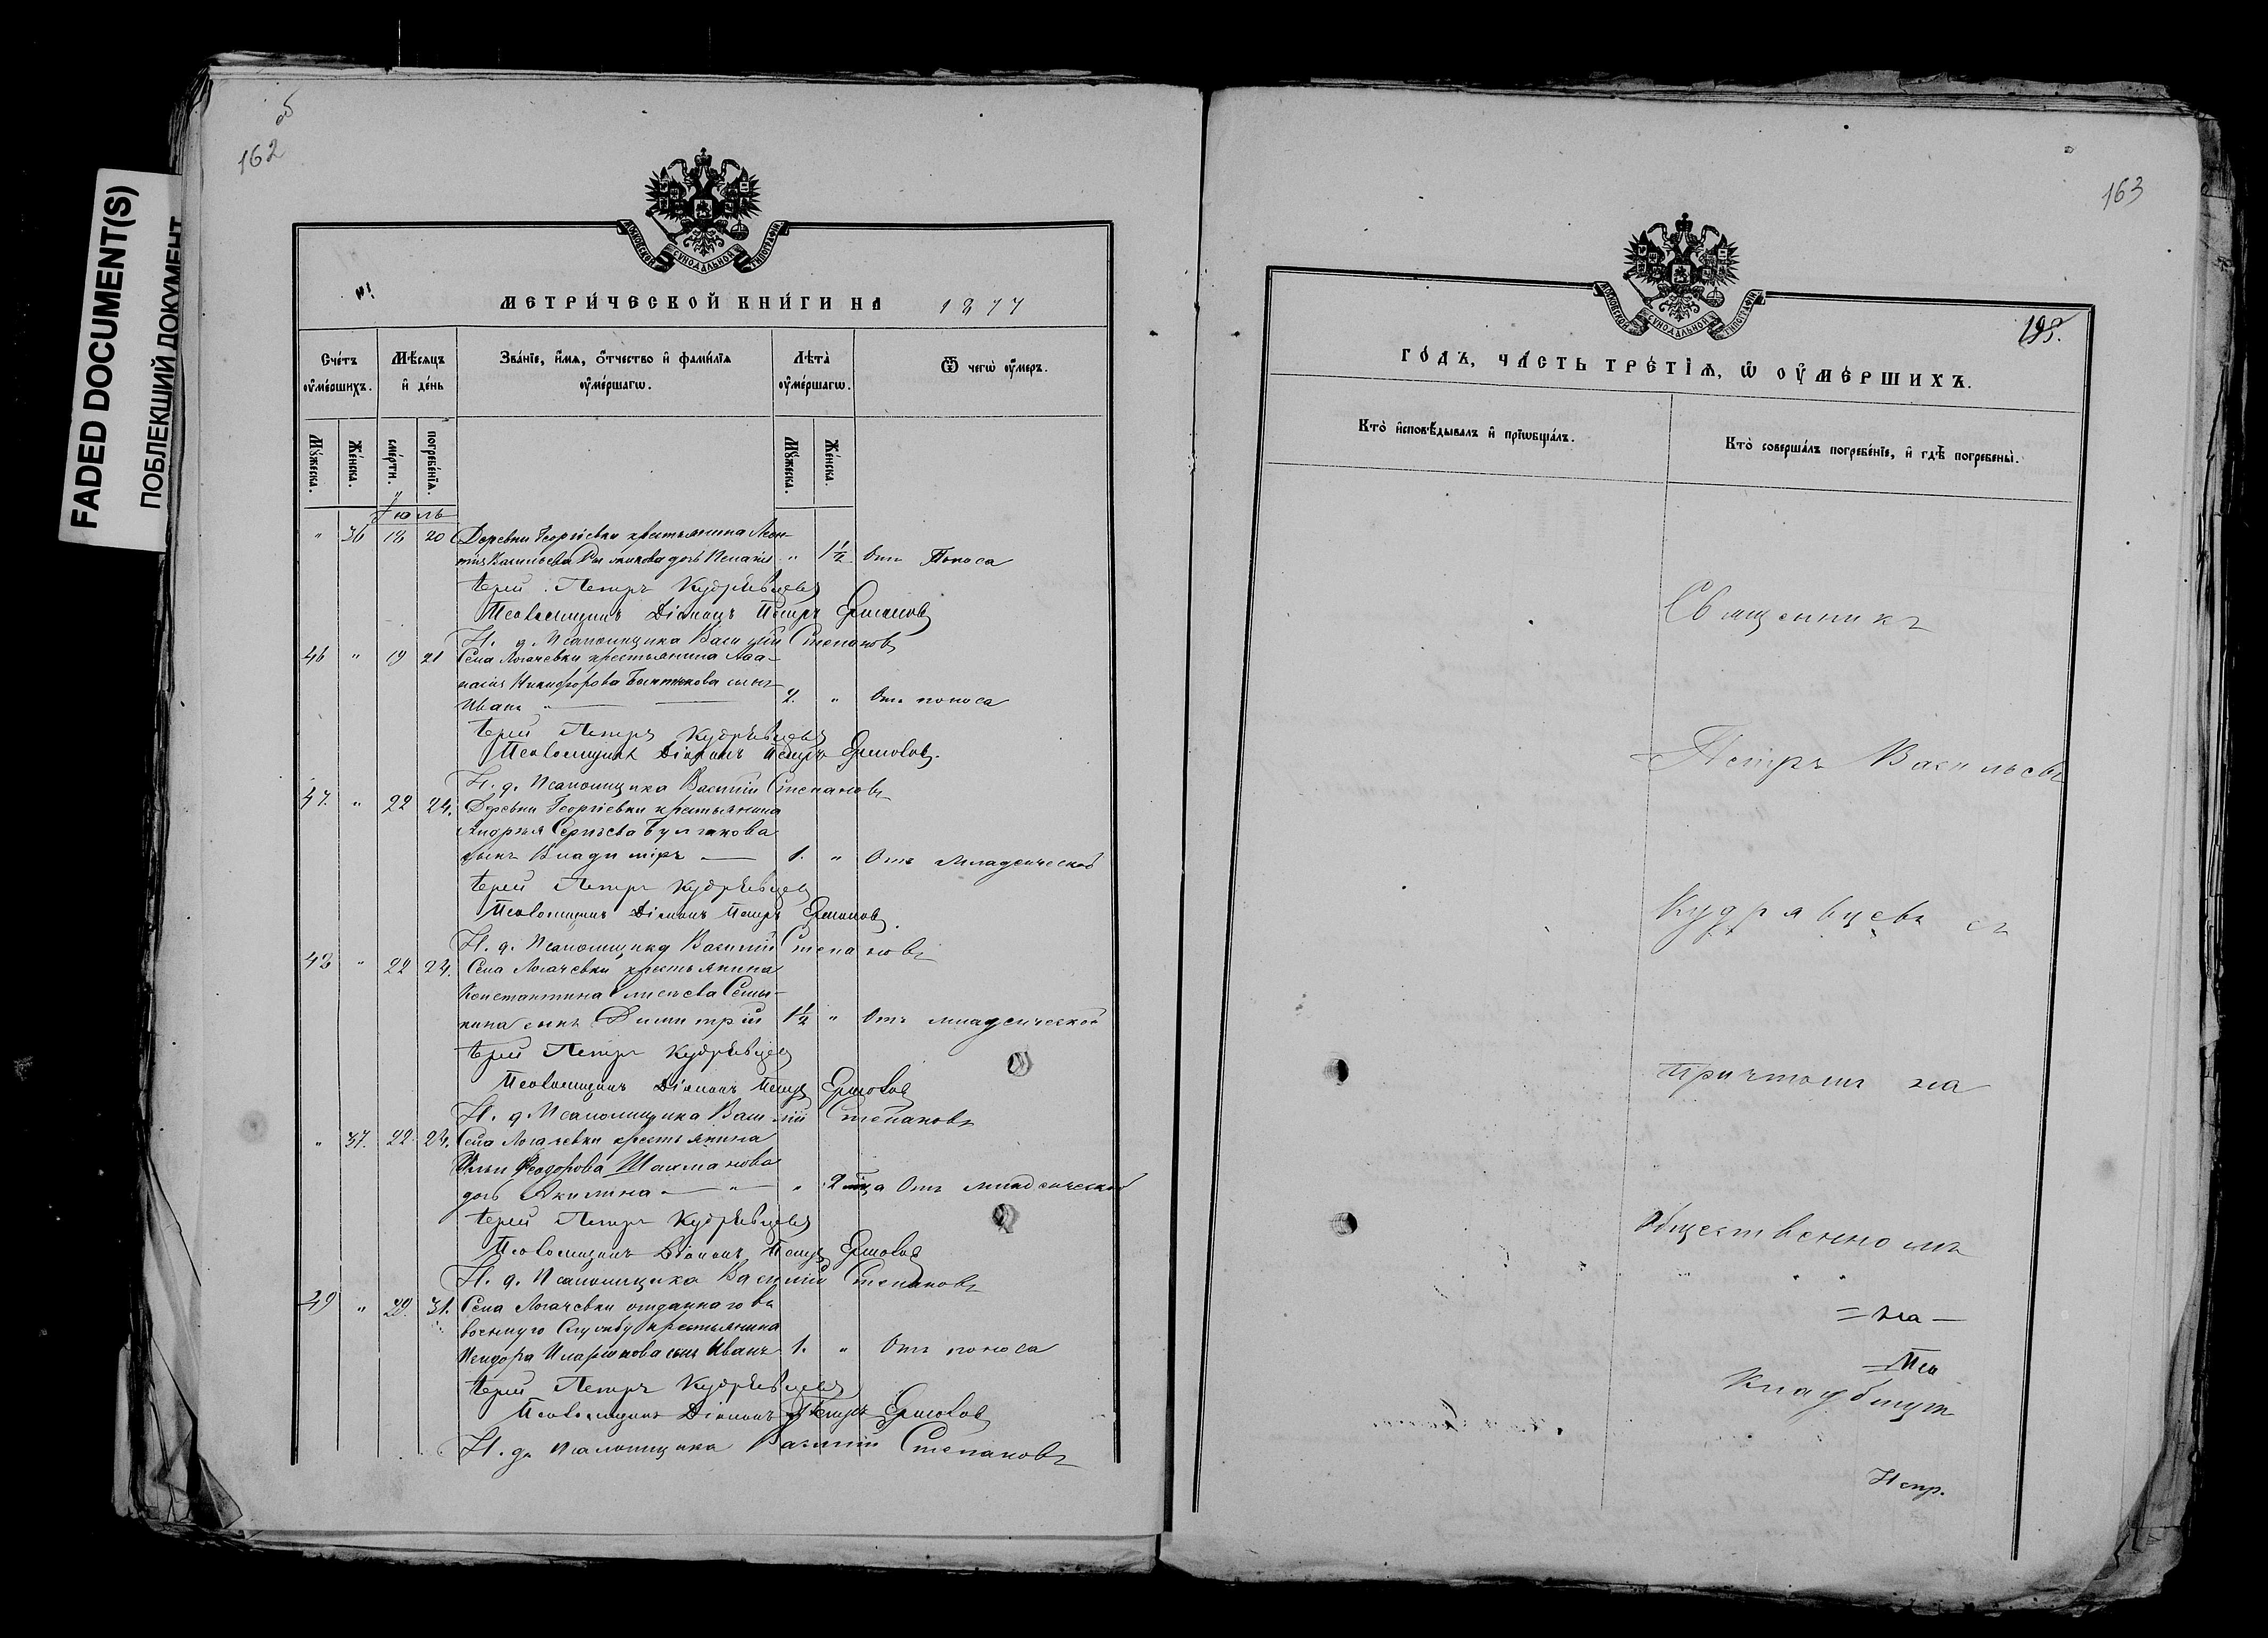 FADED DOCUMENT(S)
ПОБЛЕКШИЙ ДОКУМЕНТ
об
162
МОСКОВСКОЙ СѴНОДАЛЬНОЙ ТИПОГРАФІИ
МЕТРИ́ЧЕСКОЙ КНИ́ГИ НА 1877
Сче́тъ ᲂу҆ме́ршихъ.
Мѣ́сяцъ и҆ де́нь
Зва́нїе, и҆́мѧ, ѻ҆́тчество и҆ фами́лїѧ ᲂу҆ме́ршагѡ.
Лѣ́та ᲂу҆ме́ршагѡ.
Ѿ чегѡ̀ ᲂу҆́меръ.
Мꙋ́жеска.
Же́нска.
сме́рти.
погребе́нїѧ.
Мꙋ́жеска.
Же́нска.
Іюль
" 36 18 20 Деревни Георгіевки крестьянина Леон-
тія Васильева дочь Пелагія " 1½ Отъ Поноса
Іерей Петръ Кудрявцевъ
Псаломщикъ Діаконъ Петръ Ермоловъ
И. д. Псаломщика Василій Степановъ
46 " 19 21 Села Логачевки крестьянина Афа-
насія Никифорова сынъ
Иванъ 2. " Отъ поноса
Іерей Петръ Кудрявцевъ
Псаломщикъ Діаконъ Петръ Ермоловъ.
И. д. Псаломщика Василій Степановъ
47. " 22 24. Деревни Георгіевки крестьянина
Андрея Сергѣева Булгакова
сынъ Владиміръ — 1. " Отъ младенческой
Іерей Петръ Кудрявцевъ
Псаломщикъ Діаконъ Петръ Ермоловъ.
И. д. Псаломщика Василій Степановъ
48 " 22 24. Села Логачевки крестьянина
Константина Елисѣева Семы-
кина сынъ Димитрій 1½ " Отъ младенческой
Іерей Петръ Кудрявцевъ
Псаломщикъ Діаконъ Петръ Ермоловъ
И. д. Псаломщика Василій Степановъ
" 37. 22 24. Села Логачевки крестьянина
Ильи Ѳеодорова
дочь Акилина — " — " 2 мца Отъ младенческой
Іерей Петръ Кудрявцевъ
Псаломщикъ Діаконъ Петръ Ермоловъ
И. д. Псаломщика Василій Степановъ
49 " 29. 31. Села Логачевки отданнаго въ
военную Службу крестьянина
Исидора Иларіонова сынъ Иванъ 1. " Отъ поноса
Іерей Петръ Кудрявцевъ
Псаломщикъ Діаконъ Петръ Ермоловъ
И. д. Псаломщика Василій Степановъ
163
МОСКОВСКОЙ СѴНОДАЛЬНОЙ ТИПОГРАФІИ
ГО́ДЪ, ЧА́СТЬ ТРЕ́ТЇѦ, Ѡ҆ ОУ҆МЕ́РШИХЪ.
Кто̀ и҆сповѣ́дывалъ и҆ прїѡбща́лъ.
Кто̀ соверша́лъ погребе́нїе, и҆ гдѣ̀ погребены̀.
Священникъ
Петръ Васильевъ
Кудрявцевъ съ
причтомъ на
Общественномъ
= на —
Кладбищѣ